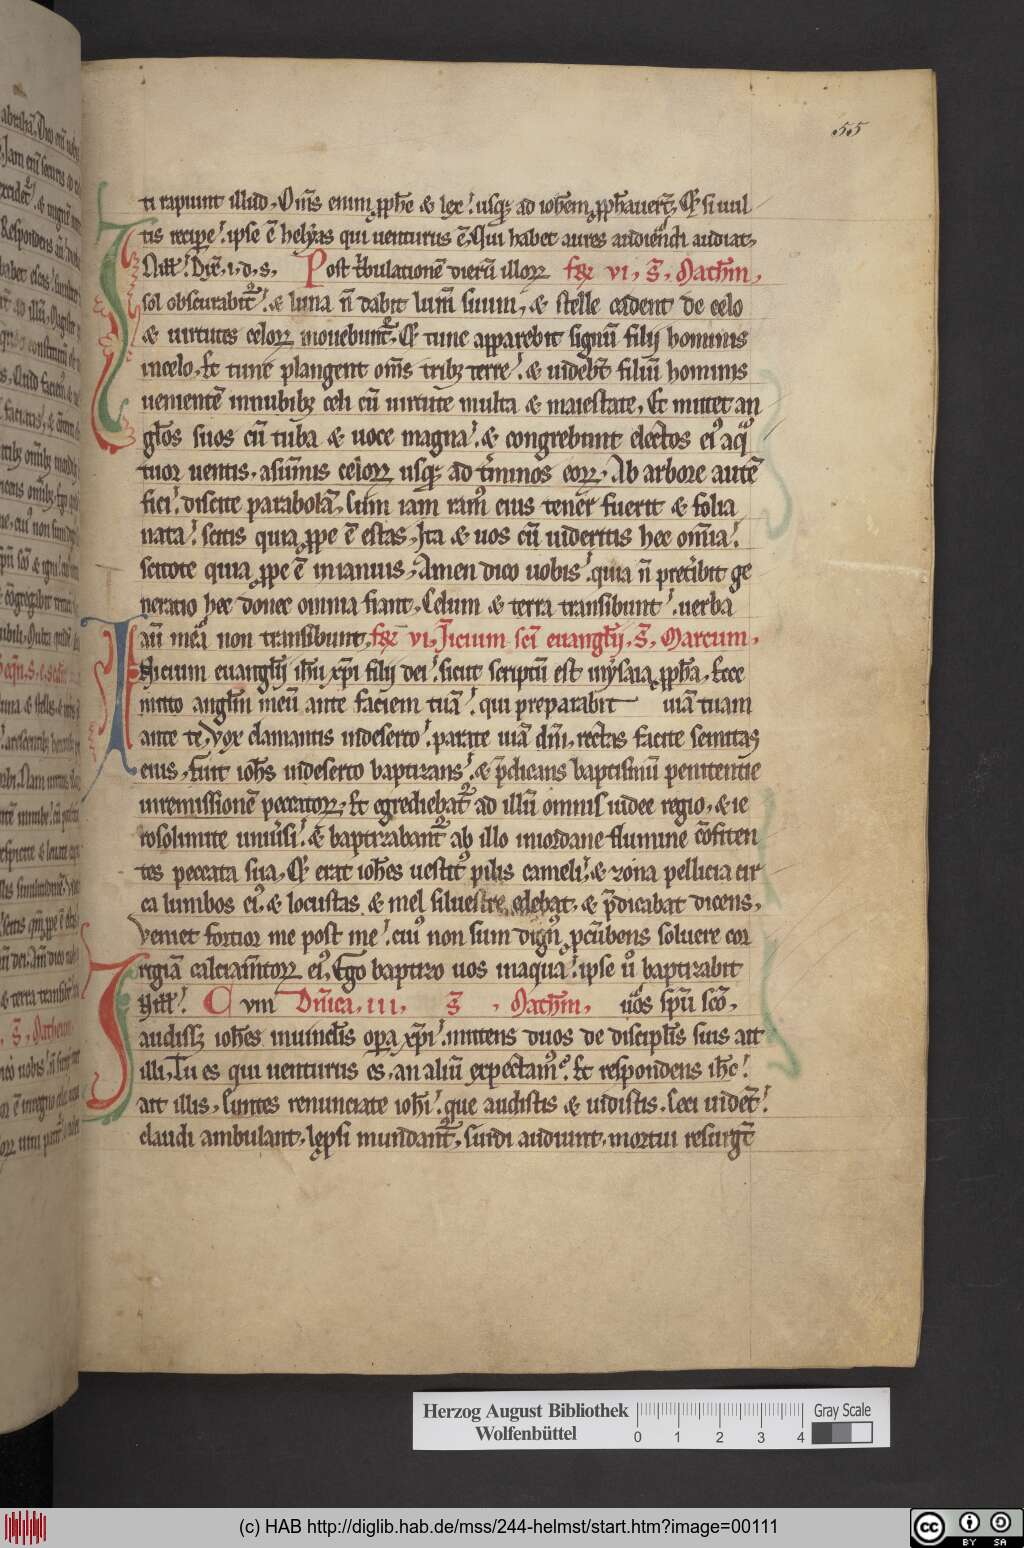 55
ti rapiunt illud. Om̄s enim ꝓph̄e & lex. usq; ad ioh̄em ꝓph̄auer̄t. Et si uul
tis recipe. ipse ē helyas qui uenturus ē. Qui habet aures audiendi audiat.
In ill'. Dix̄. i. d. s. Post t̄bulationē dierū illoꝝ fer̄ vi. s̄. Math̄m.
sol obscurabit᷑. & luna n̄ dabit lum̄ suum. & stelle cadent de celo
& uirtutes celoꝝ mouebunt᷑. Et tunc apparebit signū filij hominis
in celo. Et tunc plangent om̄s trib; terre. & uideb̄t filiū hominis
uenientē in nubib; celi cū uirtute multa & maiestate. Et mittet an
gl̄os suos cū tuba & uoce magna. & congrebunt electos ei᷒ a q̊
tuor uentis. a sūmis celoꝝ usq; ad t̄minos eoꝝ. Ab arbore autē
fici. discite parabolā. Cum iam ram᷒ eius tener fuerit & folia
nata. scitis quia ꝓpe ē estas. Ita & uos cū uideritis hec om̄ia.
scitote quia ꝓpe ē in ianuis. Amen dico uobis. quia n̄ pret̄ibit ge
neratio hec donec omnia fiant. Celum & terra transibunt. uerba
aū mea non transibunt. fer̄ vi. Inicium sc̄i euangl̄ij. s̄. Marcum.
Inicium euangl̄ij ih̄u xp̄i filij dei. sicut scriptū est in ysaia ꝓph̄a. Ecce
mitto angl̄m meū ante faciem tuā. qui preparabit uiā tuam
ante te. Vox clamantis in deserto. parate uiā dn̄i. rectas facite semitas
eius. Fuit ioh̄s in deserto baptizans. & p̄dicans baptismū penitentie
in remissionē peccatoꝝ. Et egrediebat᷑ ad illū omnis iudee regio. & ie
rosolimite uniūsi. & baptizabant᷑ ab illo in iordane flumine c̄fiten
tes peccata sua. Et erat ioh̄es uestit᷒ pilis cameli. & zona pellicia cir
ca lumbos ei᷒. & locustas & mel siluestre edebat. & p̄dicabat dicens.
Veniet fortior me post me. cui᷒ non sum dign᷒ ꝓcūbens soluere cor
rigiā calciam̄toꝝ ei᷒. Ego baptizo uos in aqua. ipse u̅ baptizabit
In ill'. Cum Dn̄ica. iii. s̄. Math̄m. uos spū sc̄o.
audiss; ioh̄es in uincl̄is opera xp̄i. mittens duos de discipl̄is suis ait
illi. Tu es qui uenturus es. an aliū expectam᷒. Et respondens ih̄c.
ait illis. Euntes renunciate ioh̄i. que audistis & uidistis. Ceci uident.
claudi ambulant. lep̄si mundant᷑. surdi audiunt. mortui resurgt̄
Herzog August Bibliothek
Wolfenbüttel
0 1 2 3 4
Gray Scale
(c) HAB http://diglib.hab.de/mss/244-helmst/start.htm?image=00111
cc BY SA